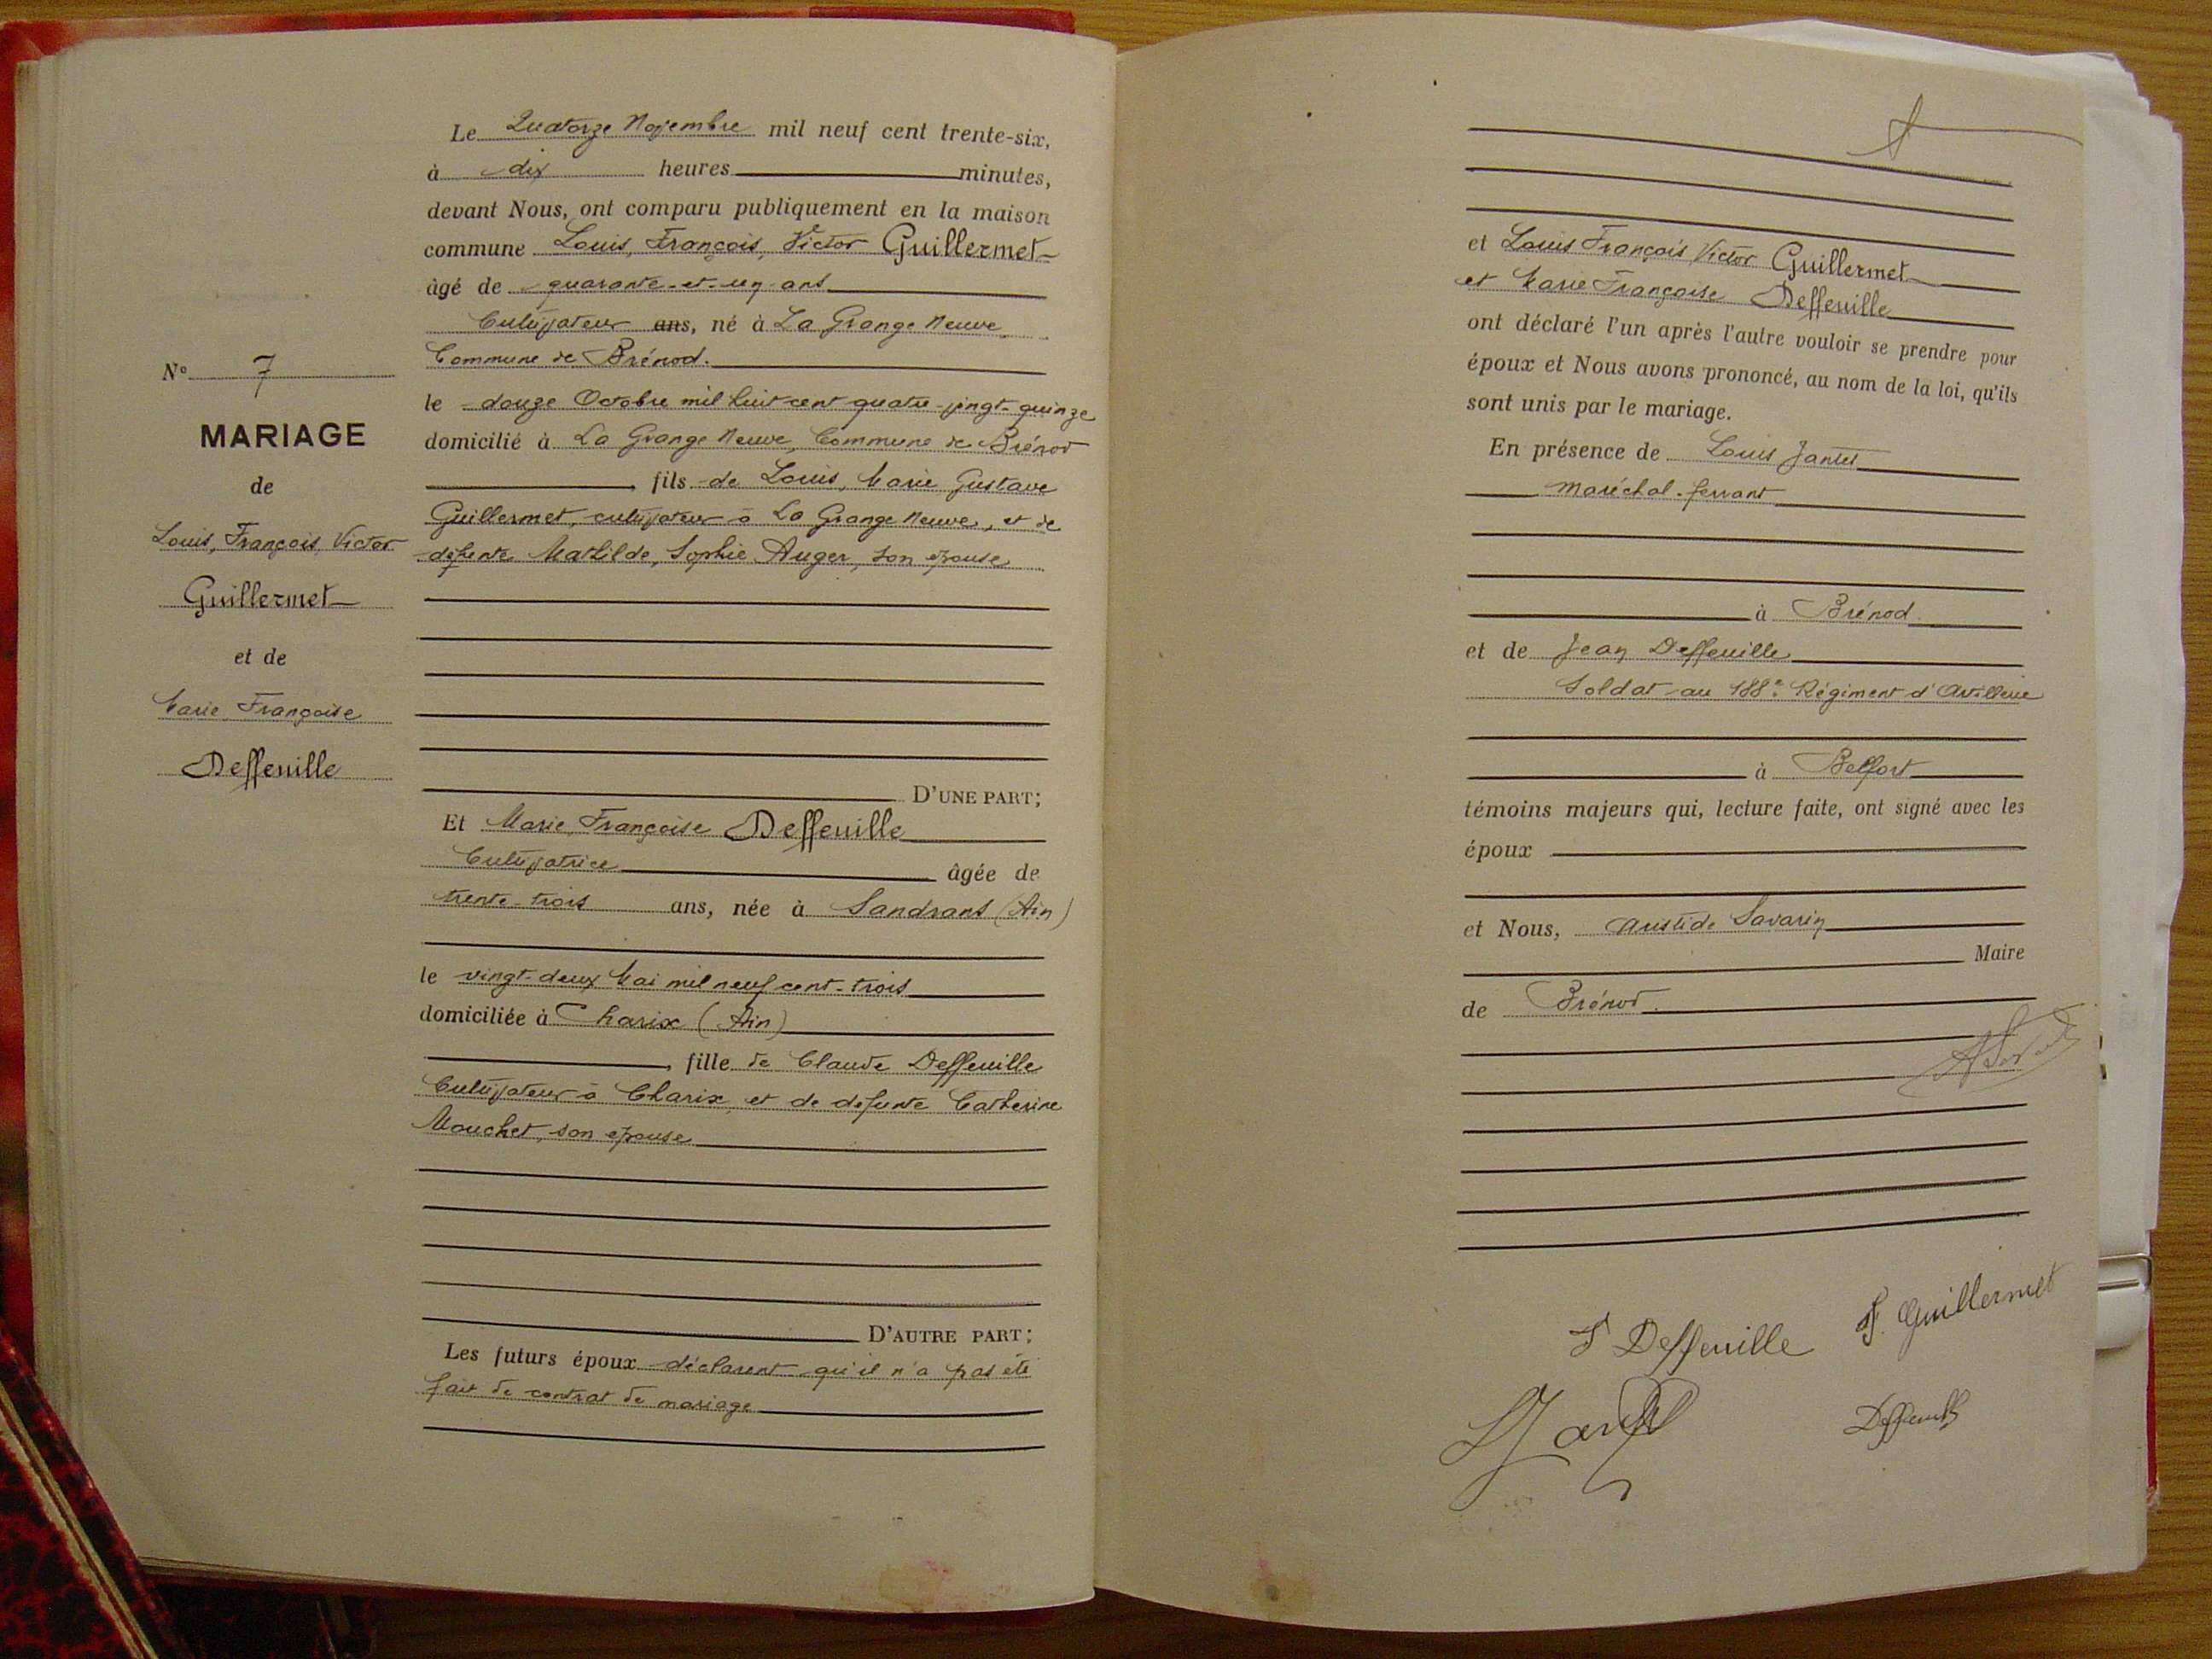 N° 7
MARIAGE
de
Louis, François, Victor
Guillermet
et de
Marie Françoise
Deffeuille
Le Quatorze Novembre mil neuf cent trente-six,
à dix heures minutes,
devant Nous, ont comparu publiquement en la maison
commune Louis, François, Victor Guillermet
âgé de quarante-et-un ans
Cultivateur ans, né à La Grange Neuve
Commune de Brénod.
le douze Octobre mil huit cent quatre-vingt-quinze
domicilié à La Grange Neuve, Commune de Brénod
, fils de Louis, Marie Gustave
Guillermet, cultivateur à La Grange Neuve, et de
défunte Mathilde, Sophie Auger, son épouse
D'UNE PART;
Et Marie, Françoise Deffeuille
Cultivatrice âgée de
trente-trois ans, née à Sandrans (Ain)
le vingt-deux Mai mil neuf cent-trois
domiciliée à Charix (Ain)
, fille de Claude Deffeuille
Cultivateur à Charix, et de défunte Catherine
Mouchet, son épouse
D'AUTRE PART;
Les futurs époux déclarent qu'il n'a pas été
fait de contrat de mariage
et Louis François Victor Guillermet
et Marie Françoise Deffeuille
ont déclaré l'un après l'autre vouloir se prendre pour
époux et Nous avons prononcé, au nom de la loi, qu'ils
sont unis par le mariage.
En présence de Louis Jantet
maréchal-ferrant
à Brénod.
et de Jean Deffeuille
Soldat au 188e Régiment d'Artillerie
à Belfort
témoins majeurs qui, lecture faite, ont signé avec les
époux
et Nous, Aristide Savarin
Maire
de Brénod.
F. Guillermet
F Deffeuille
Deffeuille